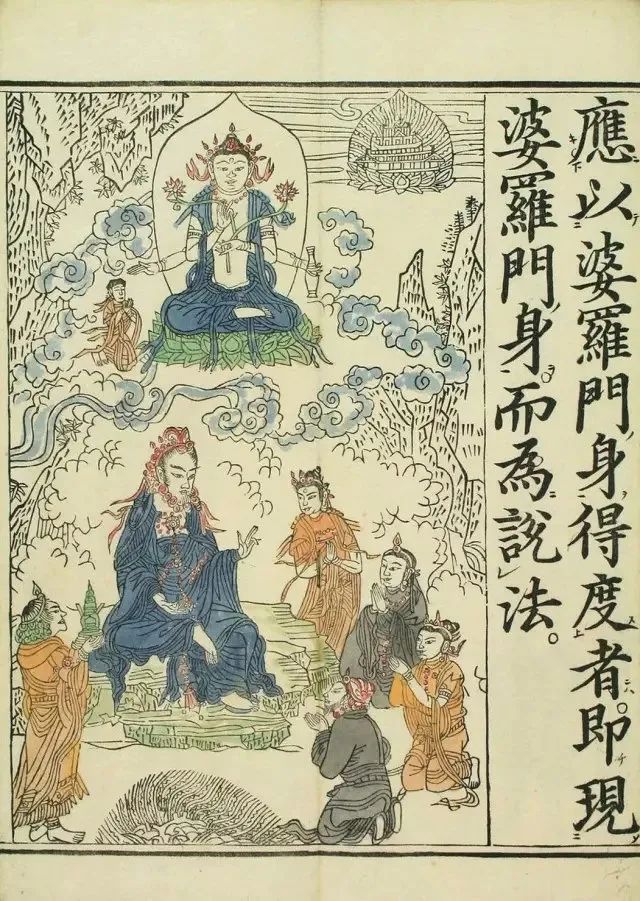 應以婆羅門身得度者。即現
婆羅門身。而為說法。